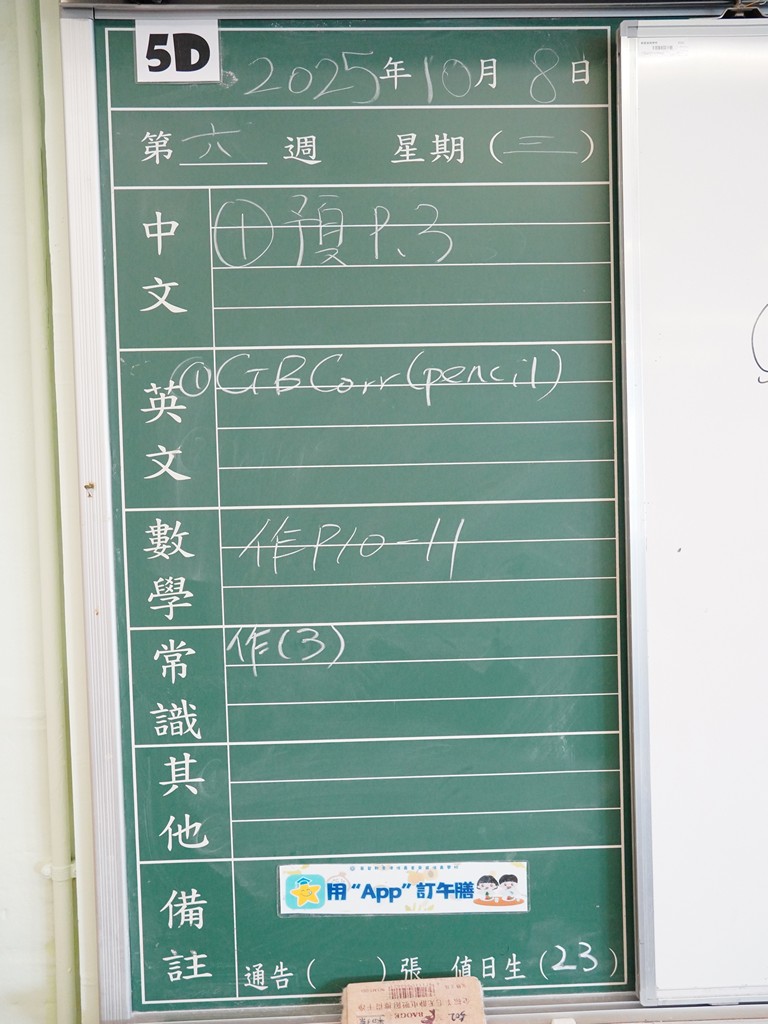 5D
2025年10月8日
第六週 星期(三)
中文
①預 P.3
英文
①GB Corr(pencil)
數學
作P10-11
常識
作(3)
其他
備註
用“App”訂午膳
通告( )張 值日生(23)
BADGE